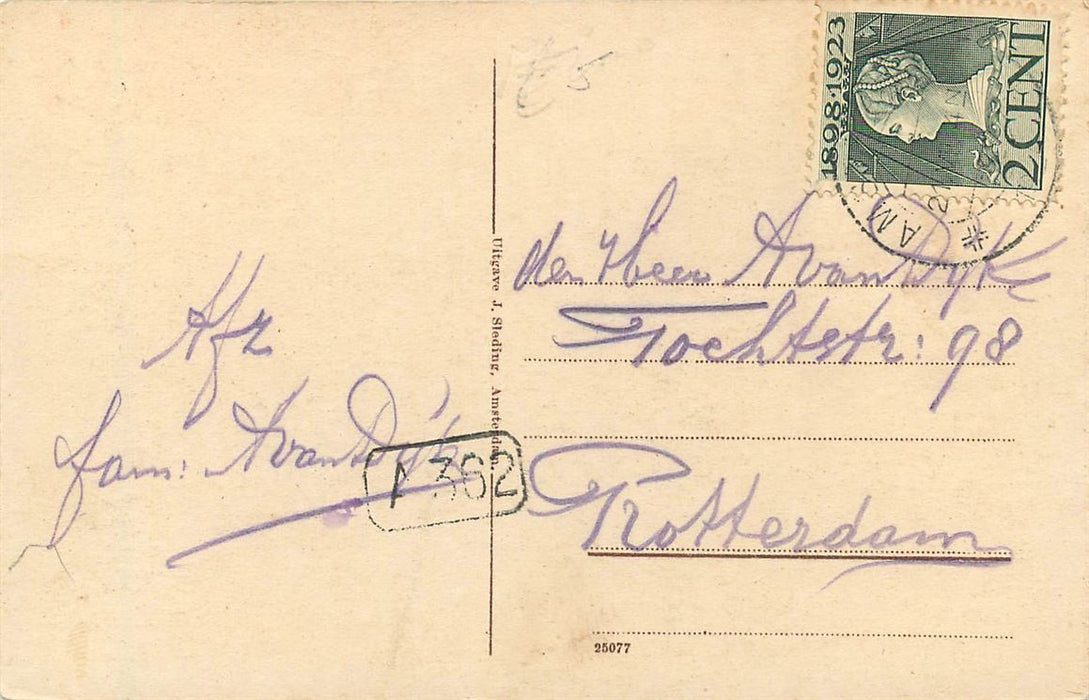 € 5
1898·1923
2 CENT
AM
den Heer A van Dyk
Tochtstr: 98
Rotterdam
Afz
fam: A van Dijk
Uitgave J. Sleding, Amsterdam.
A 362
25077